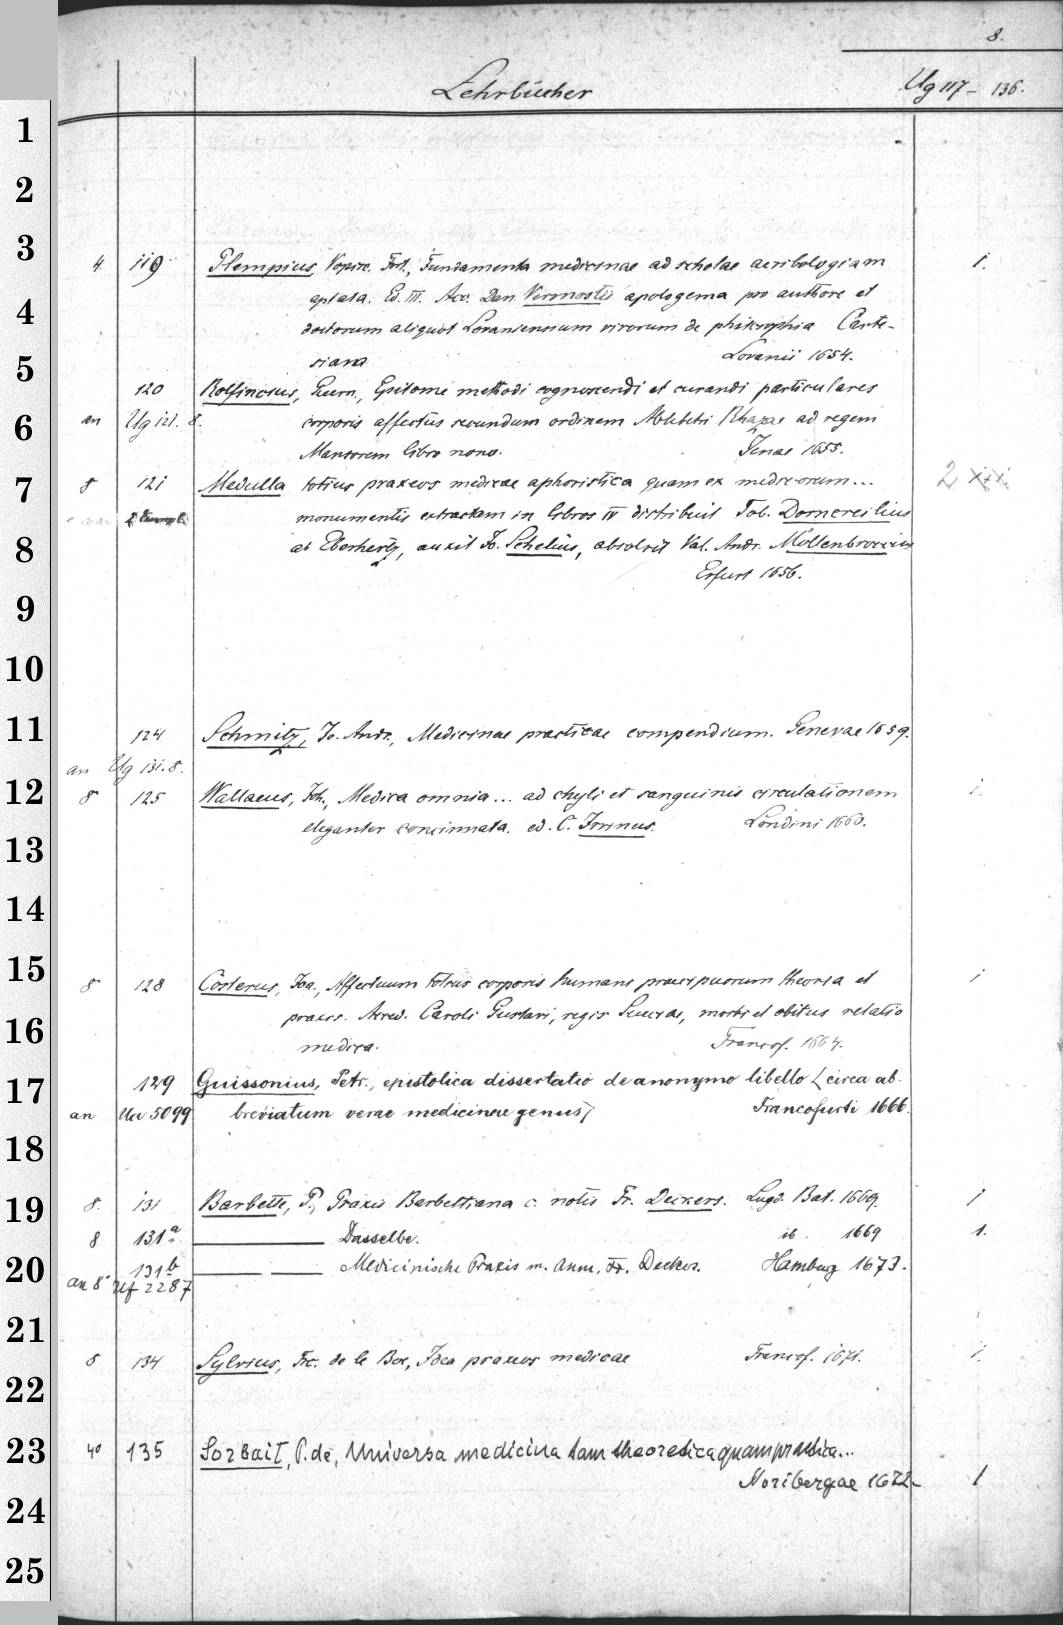 8.
Lehrbücher Ug 117 - 136.
1
2
3
4 119 Plempius, Vopisc. Fort., Fundamenta medicinae ad scholae acribologiam 1.
aptata. Ed. III. Acc. Dan. Vermostii apologema pro authore et
4
doctorum aliquot Lovaniensium virorum de philosophia Carte-
5
siana Lovanii 1654.
120 Rolfincius, Guern., Epitome methodi cognoscendi et curandi particulares
6
an Ug 121. 8. corporis affectus secundum ordinem Abubetri Rhazae ad regem
Mansorem libro nono. Jenae 1655.
7
8 121 Medulla totius praxeos medicae aphoristica quam ex medicorum... 2
monumentis extractam in libros IV distribuit Tob. Dorncreilius
8
ab Eberhertz, auxit Jo. Schelius, absolvit Val. Andr. Möllenbroccius
Erfurt 1656.
9
10
11
124 Schmitz, Jo. Andr., Medicinae practicae compendium. Genevae 1659.
an Ug 131. 8.
12
8 125 Wallaeus, Joh., Medica omnia... ad chyli et sanguinis circulationem 1.
eleganter concinnata. ed. C. Irvinus. Londini 1660.
13
14
15
8 128 Costerus, Joa., Affectuum totius corporis humani praecipuorum theoria et 1
praxis. Acced. Caroli Gustavi, regis Sueciae, morbi et obitus relatio
16
medica. Francof. 1664.
17
129 Guissonius, Petr., epistolica dissertatio de anonymo libello [circa ab-
an Uu 5099 breviatum verae medicinae genus] Francofurti 1666.
18
19
8. 131 Barbette, P., Praxis Barbettiana c. notis Fr. Deckers. Lugd. Bat. 1669. 1
8 131a Dasselbe. ib. 1669 1.
20
131b Medicinische Praxis m. Anm. Fr. Deckers. Hamburg 1673.
an 8° Uf 2287
21
8 134 Sylvius, Frc. de le Boe, Idea praxeos medicae Francof. 1671. 1.
22
23
4° 135 Sorbait, P. de, Universa medicina tam theoretica quam practica...
Noribergae 1672. 1
24
25